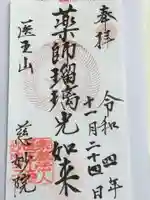 奉拝
令和四年
十一月二十四日
薬師瑠璃光如来
医王山
慈妙院